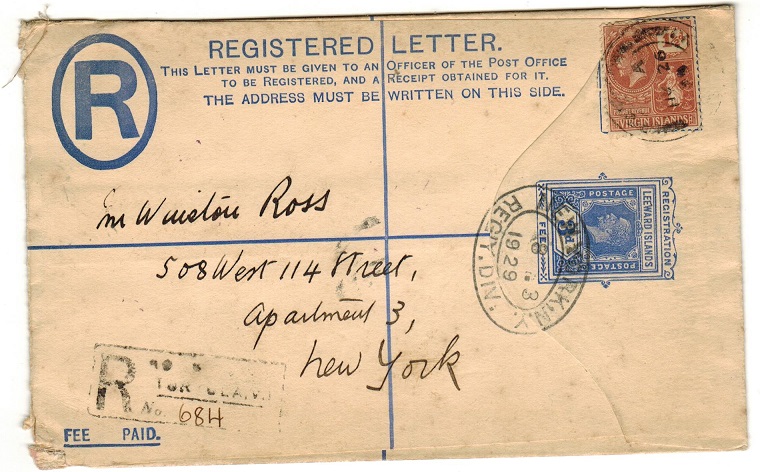 R
REGISTERED LETTER.
THIS LETTER MUST BE GIVEN TO AN OFFICER OF THE POST OFFICE
TO BE REGISTERED, AND A RECEIPT OBTAINED FOR IT.
THE ADDRESS MUST BE WRITTEN ON THIS SIDE.
VIRGIN ISLANDS
POSTAGE
LEEWARD ISLANDS
POSTAGE
REGISTRATION
FEE
N.Y. REG'Y. DIV.
3
1929
Mr Winston Ross
508 West 114 Street,
Apartment 3,
New York
R
TORTOLA, V.I.
No. 684
FEE PAID.